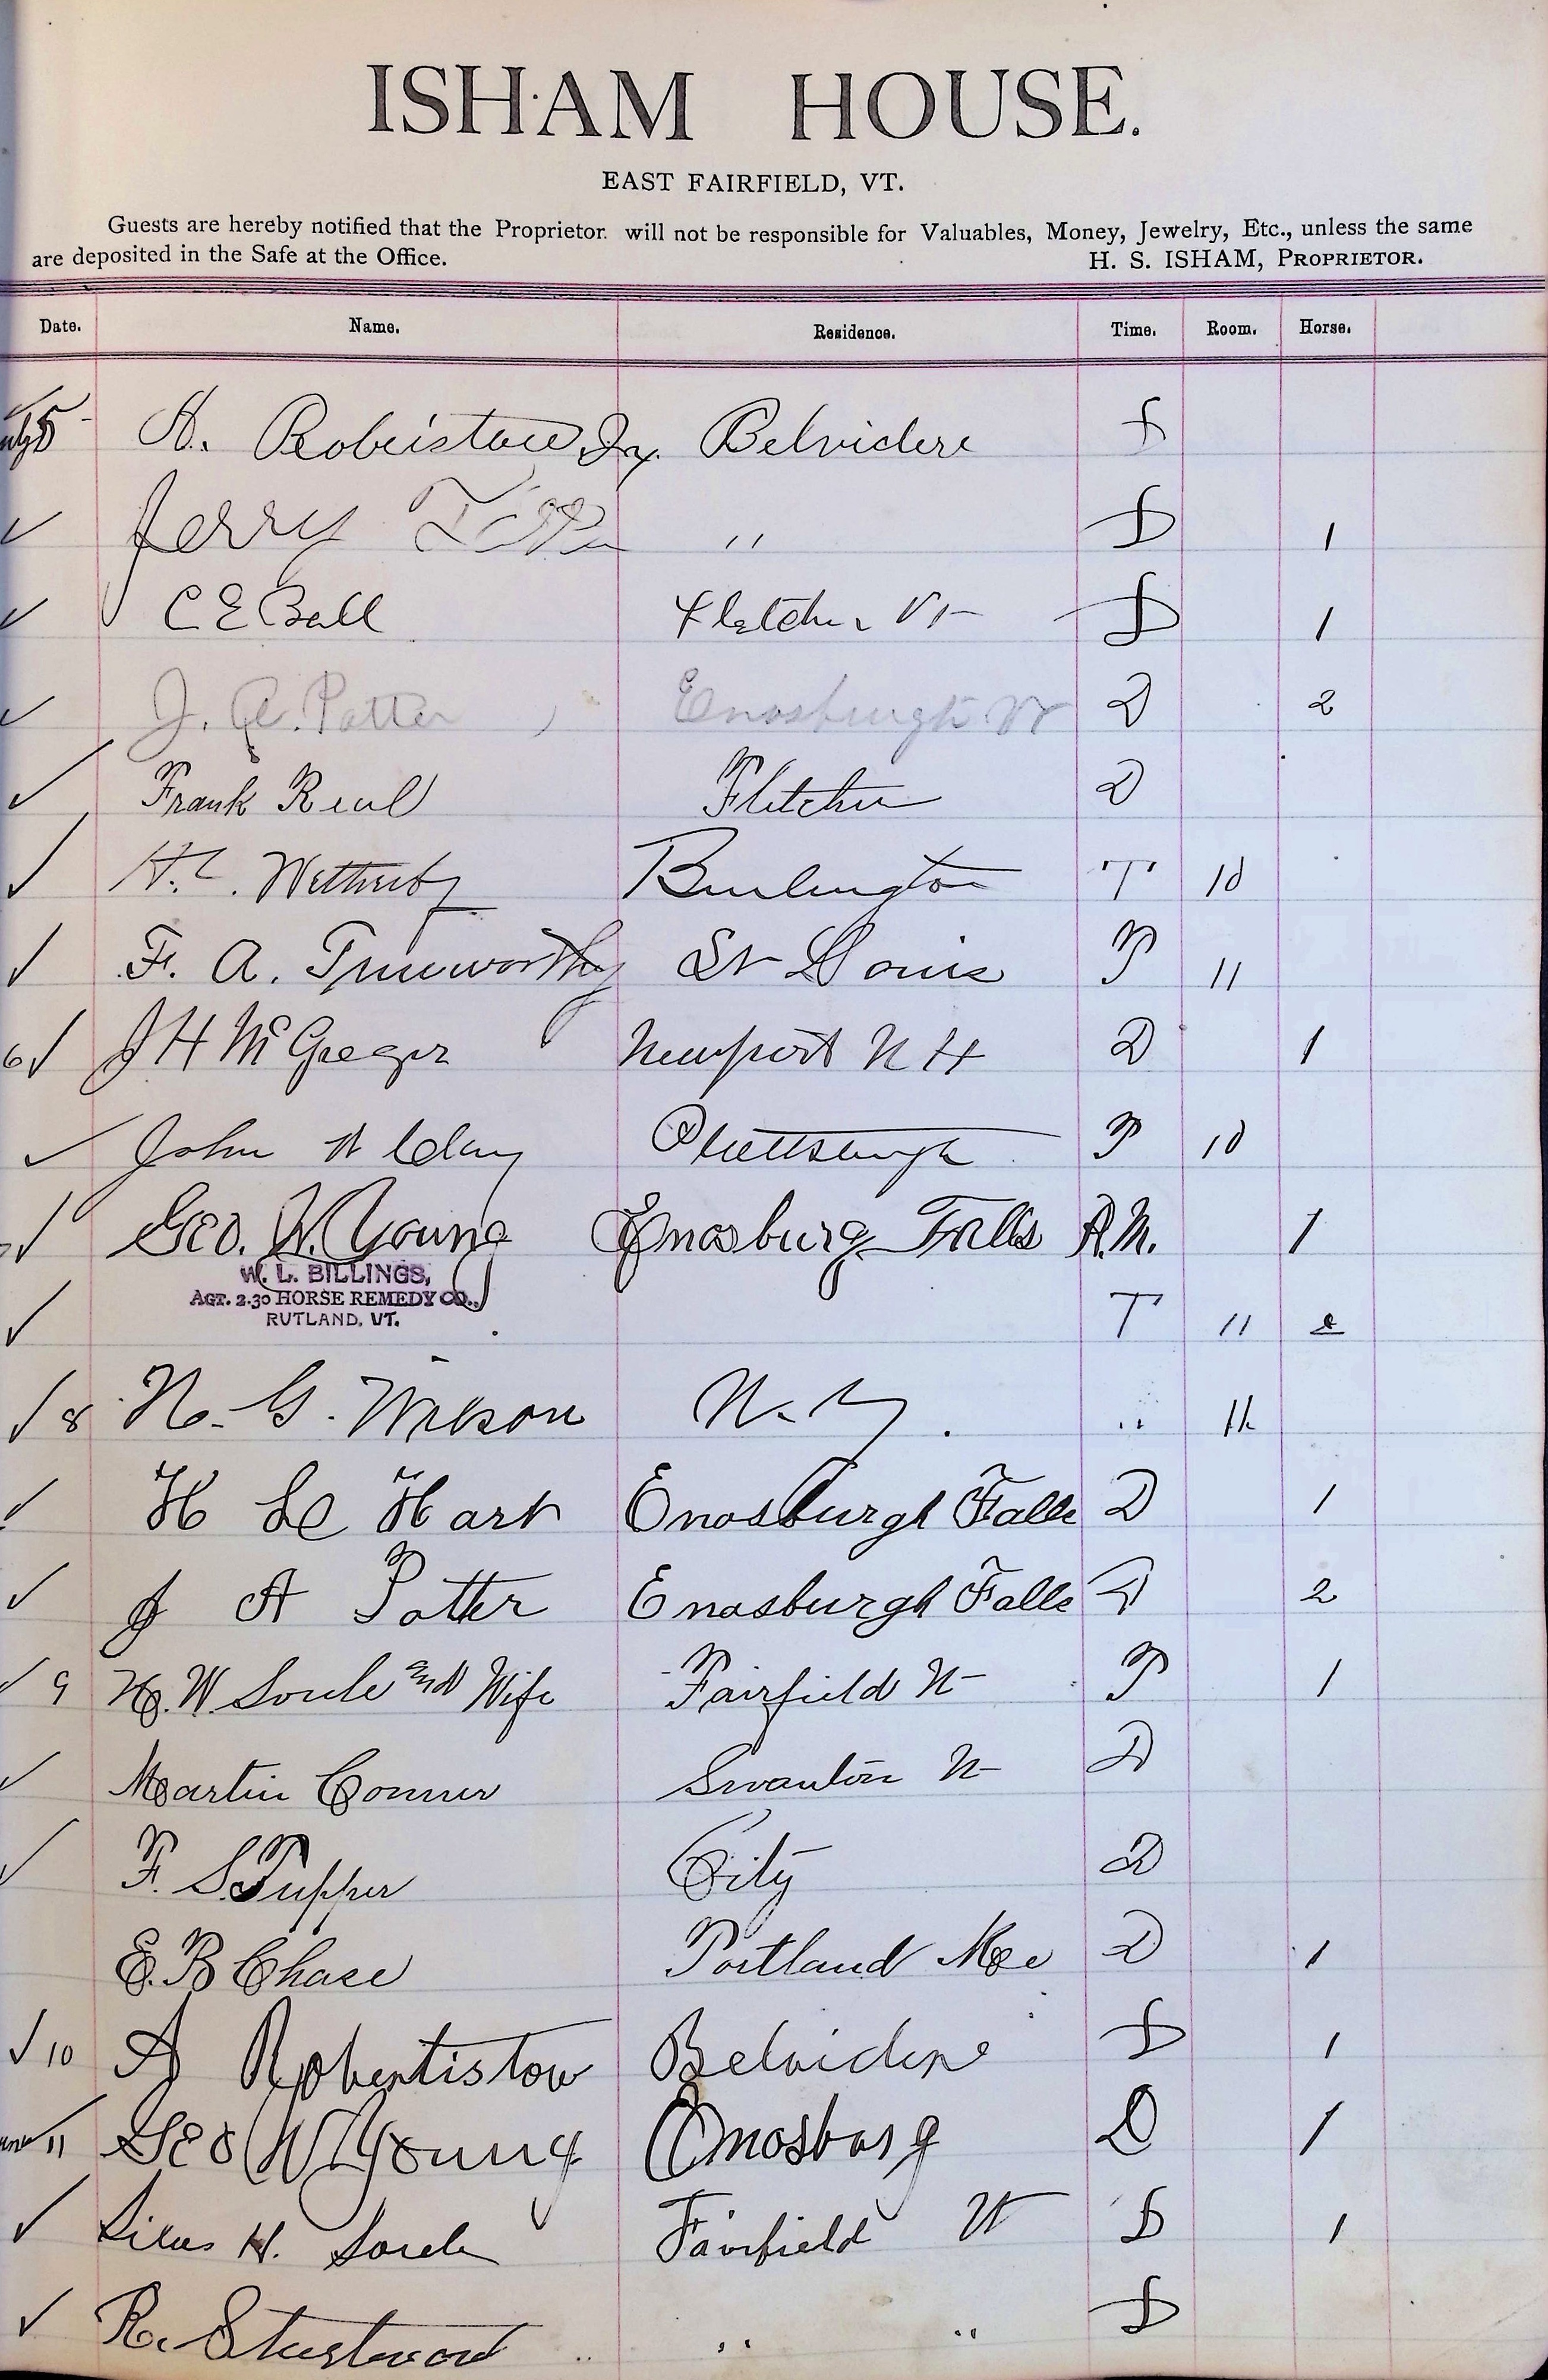 ISHAM HOUSE.
EAST FAIRFIELD, VT.
Guests are hereby notified that the Proprietor. will not be responsible for Valuables, Money, Jewelry, Etc., unless the same
are deposited in the Safe at the Office. H. S. ISHAM, PROPRIETOR.
Date. Name. Residence. Time. Room. Horse.
5 Jr. Belvidere D
Jerry " D 1
C E Ball Fletcher Vt D 1
J. A. Potter Enosburgh Vt D 2
Frank Fletcher D
H. C. Wetherby Burlington T 10
F. A. Trueworthy St Louis P 11
6 J H McGregor Newport N H D 1
John Plattsburgh P 10
Geo. W. Young Enosburg Falls A.M. 1
W. L. BILLINGS,
AGT. 2.30 HORSE REMEDY CO.,
RUTLAND, VT.
T 11
8 N. G. Wilson N. Y. " 11
H L Hart Enosburgh Falls D 1
J A Potter Enosburgh Falls D 2
9 H. W. Soule and Wife Fairfield Vt P 1
Martin Conner Swanton Vt D
F. S. Tupper City D
E. B Chase Portland Me D 1
10 A Robertistow Belvidere D 1
11 Geo W Young Enosburg D 1
Silas H. Soule Fairfield Vt D 1
R. " " D